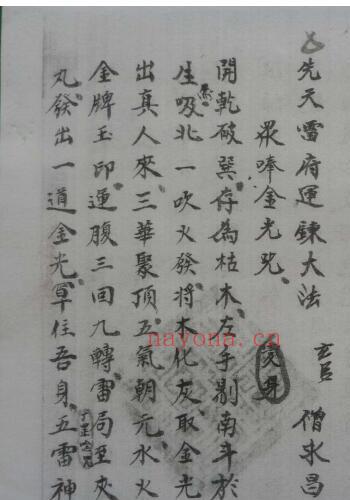 先天雷府運鍊大法 玄邑 僧永昌
眾唪金光咒 變身
開乾破巽存為枯木左手剔南斗於
生吸北一吹火發將木化灰取金光
出真人來三華聚頂五氣朝元水火
金牌玉印運腹三回九轉雷局至夾
丸發出一道金光草住吾身五雷神
nayona.cn